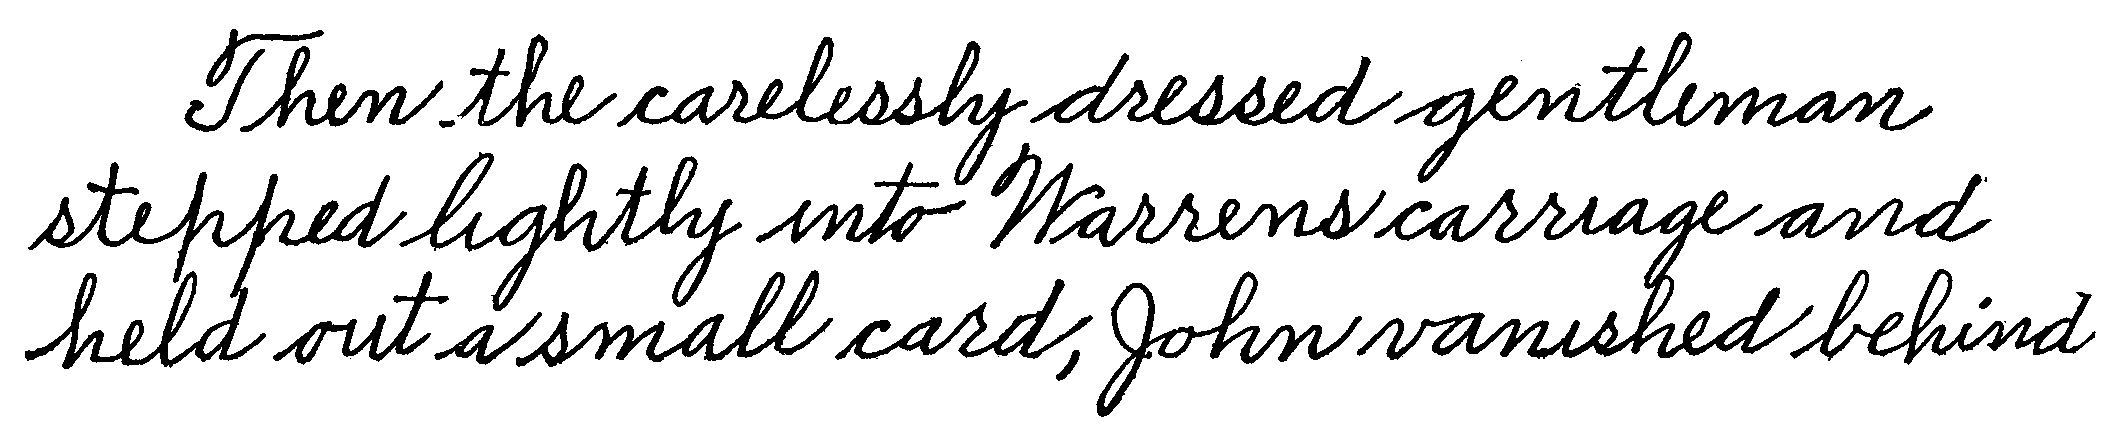 Then the carelessly dressed gentleman
stepped lightly into Warrens carriage and
held out a small card, John vanished behind